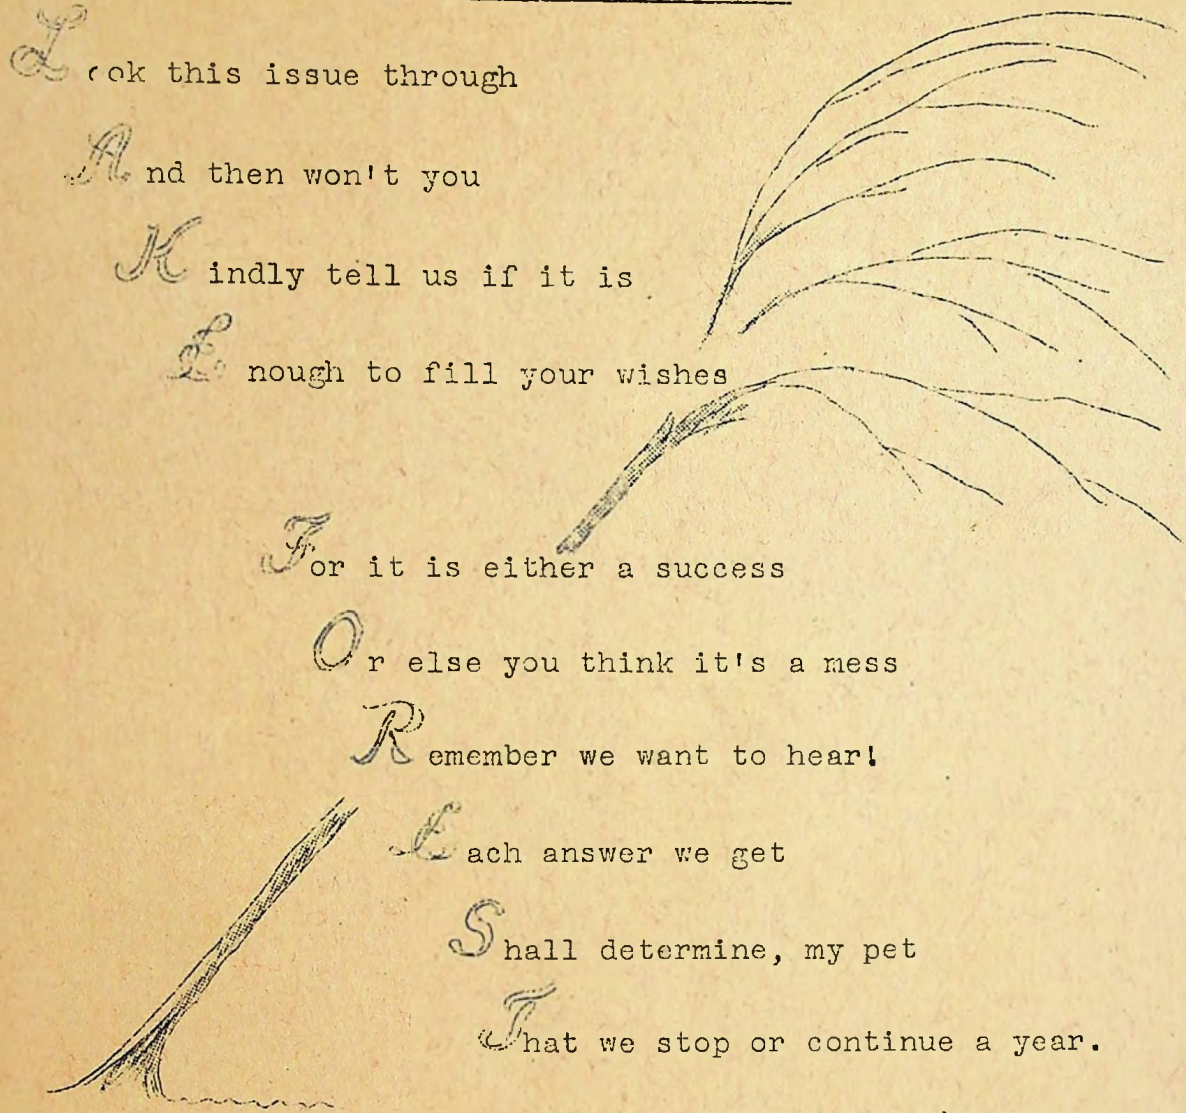 Look this issue through
And then won't you
Kindly tell us if it is
Enough to fill your wishes
For it is either a success
Or else you think it's a mess
Remember we want to hear!
Each answer we get
Shall determine, my pet
That we stop or continue a year.